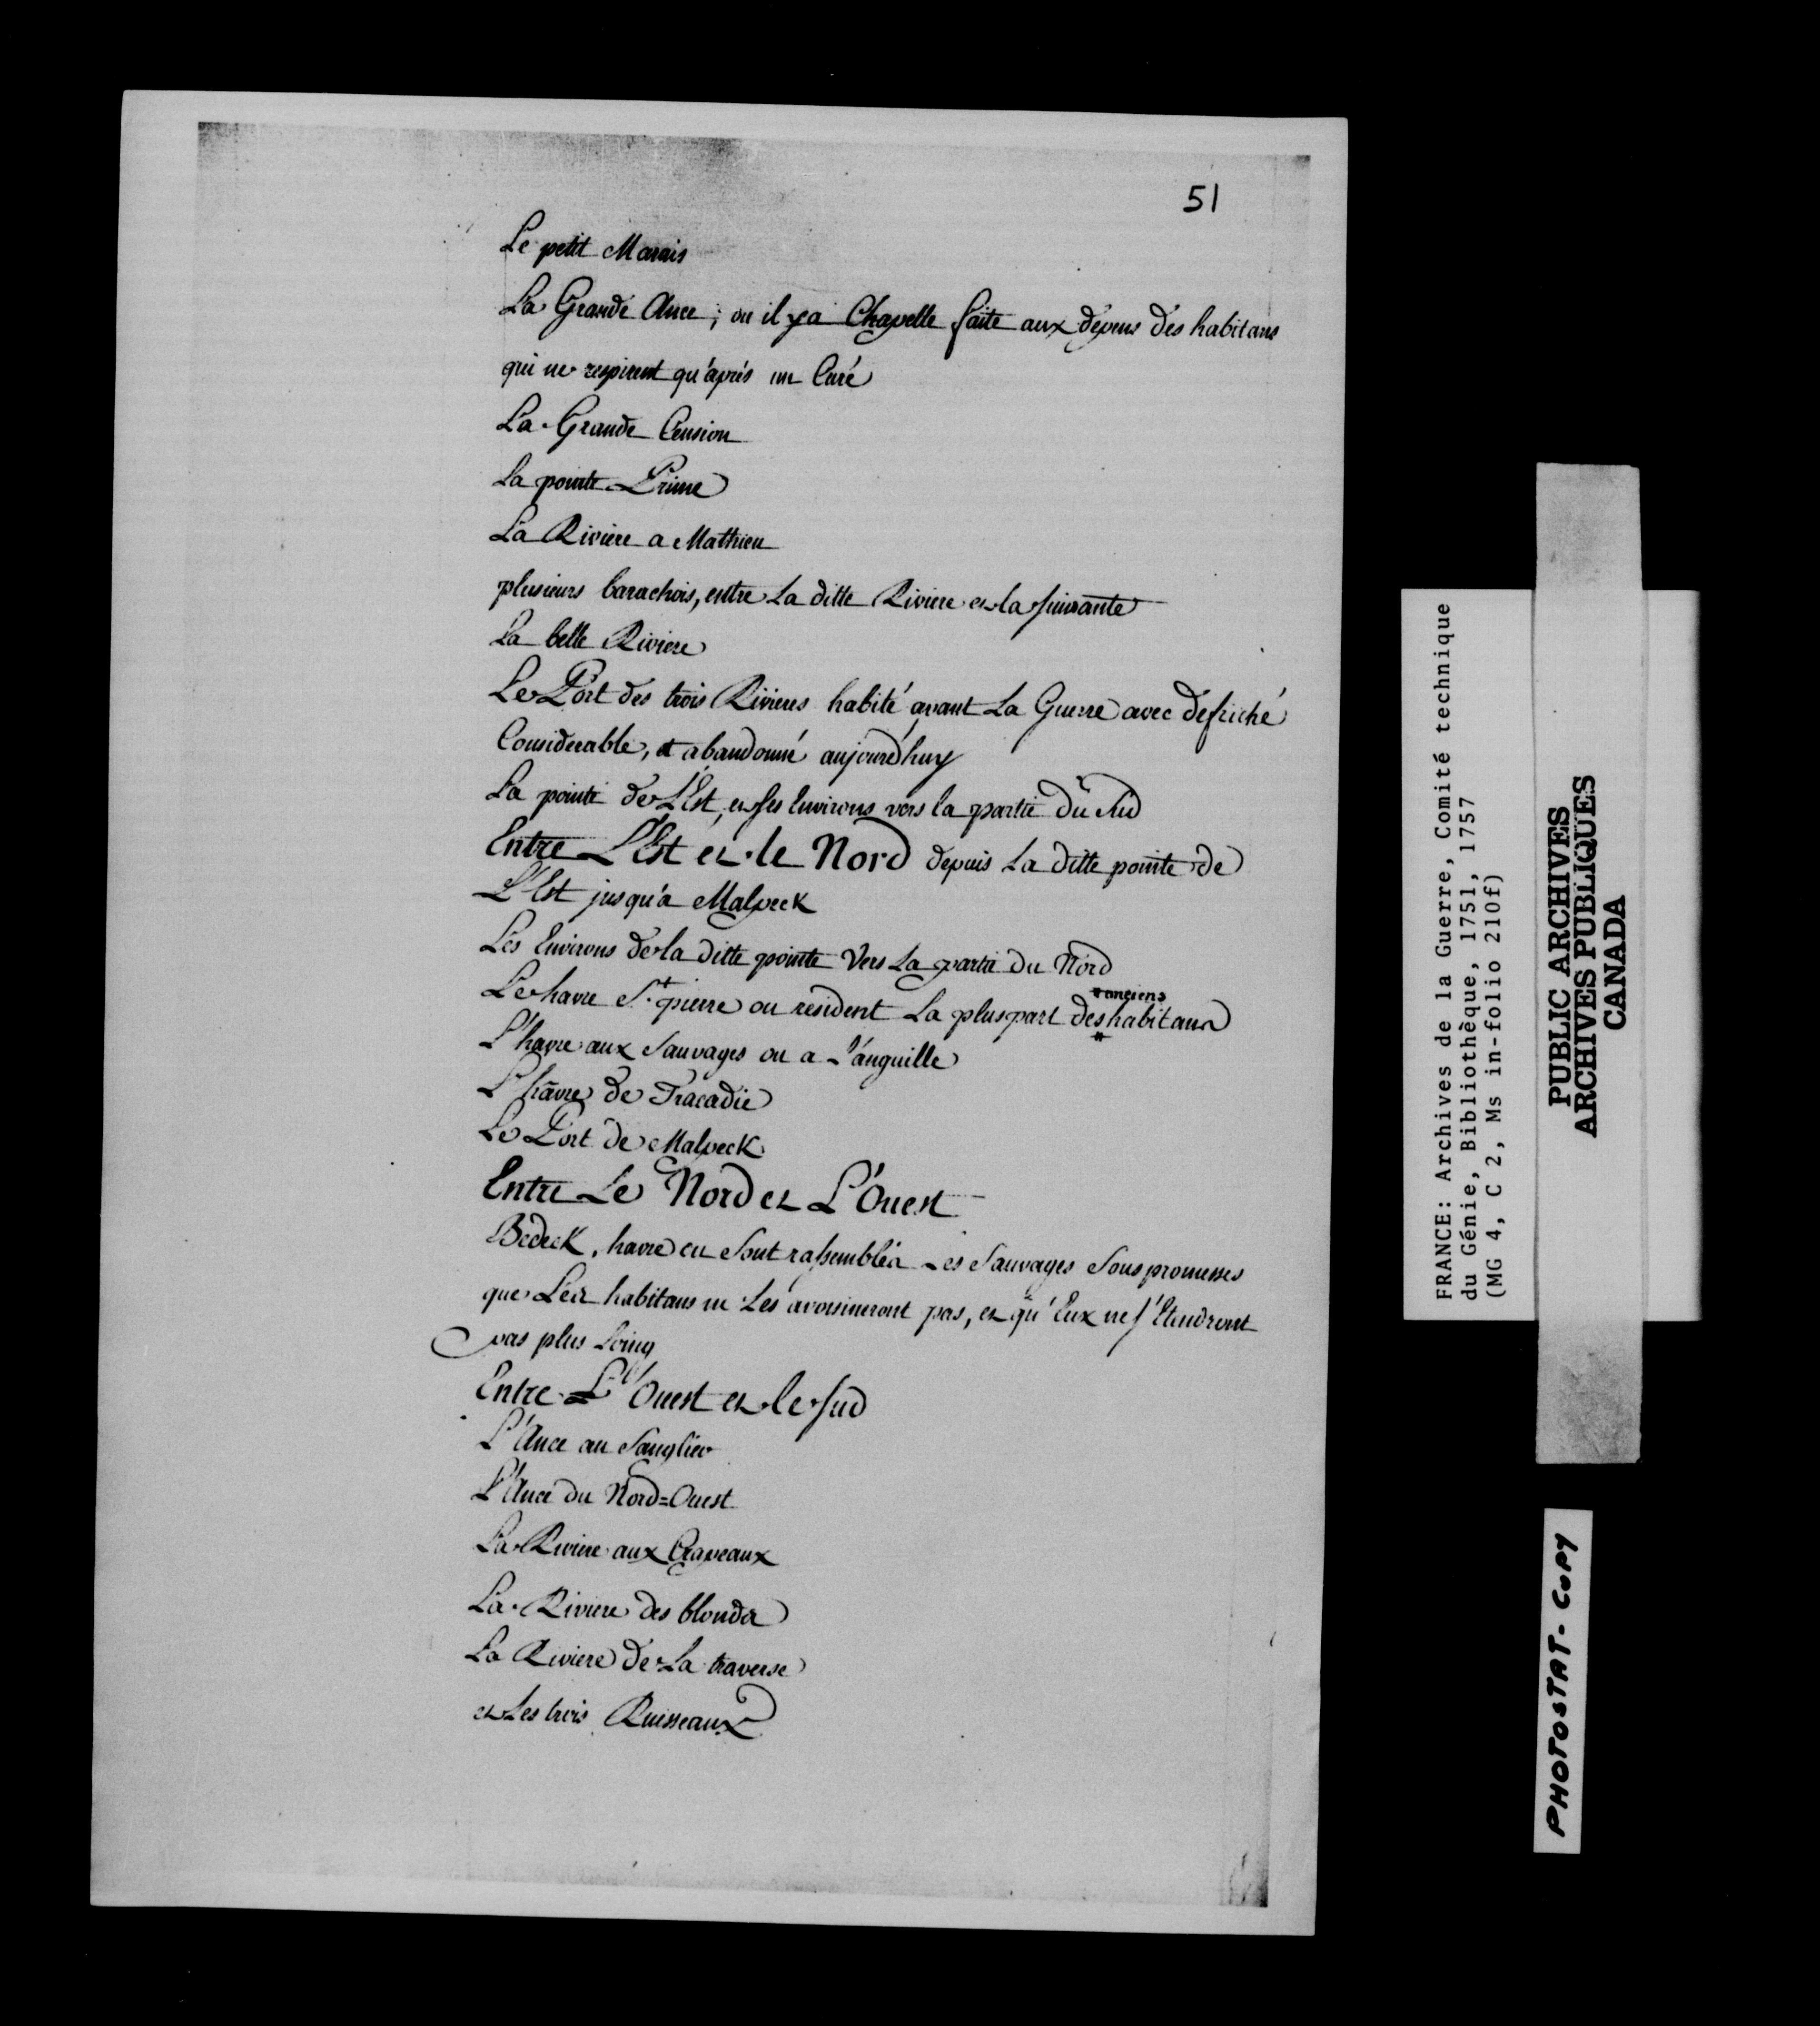 51
Le petit Marais
La Grande Ance; ou il y a Chapelle faite aux dépens des habitans
qui ne respirent qu'aprés un Curé
La Grande Cension
La pointe Prime
La Riviere a Mathieu
plusieurs barachois, entre La ditte Riviere et la suivante
La belle Riviere
Le Port des trois Rivieres habité avant La Guerre avec defriché
Considerable, et abandonné aujourd'huy
La pointe de L'Est, et ses Environs vers la partie du Sud
Entre L'Est et le Nord depuis La ditte pointe de
L'Est jusqu'a Malpeck
Les Environs de la ditte pointe Vers La partie du Nord
Le havre St. pierre ou resident La pluspart des habitans
* anciens
*
L'havre aux Sauvages ou a L'anguille
L'havre de Tracadie
Le Port de Malpeck
Entre Le Nord et L'Ouest
Bedeck, havre ou Sont rassemblés Les Sauvages Sous promesses
que Les habitans ne Les avoisineront pas, et qu'Eux ne s'Etendront
pas plus Loing
Entre L'Ouest et le Sud
L'Ance au Sanglier
L'Ance du Nord=Ouest
La Riviere aux Crapeaux
La Riviere des blonds
La Riviere de La traverse
et Les trois Ruisseaux
FRANCE: Archives de la Guerre, Comité technique
du Génie, Bibliothèque, 1751, 1757
(MG 4, C 2, Ms in-folio 210f)
PUBLIC ARCHIVES
ARCHIVES PUBLIQUES
CANADA
PHOTOSTAT-COPY